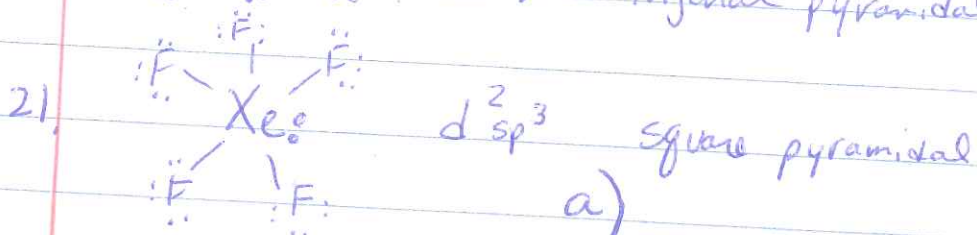 pyramida
:F: :F: :F:
21. Xe: d²sp³ square pyramidal
:F: :F:
a)